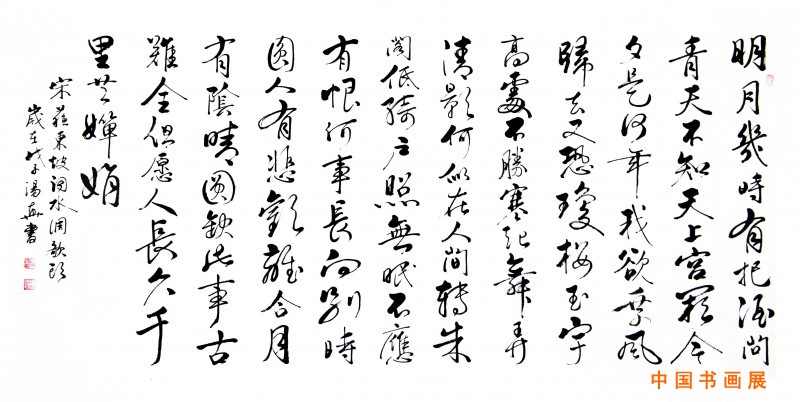 明月幾時有把酒问
青天不知天上宫闕今
夕是何年我欲乘風
歸去又恐瓊楼玉宇
高處不勝寒起舞弄
清影何似在人间轉朱
閣低绮户照無眠不應
有恨何事長向别時
圆人有悲歡離合月
有陰晴圆缺此事古
難全但愿人長久千
里共嬋娟
宋蘇東坡词水调歌头
歲在戊子湯書
中国书画展